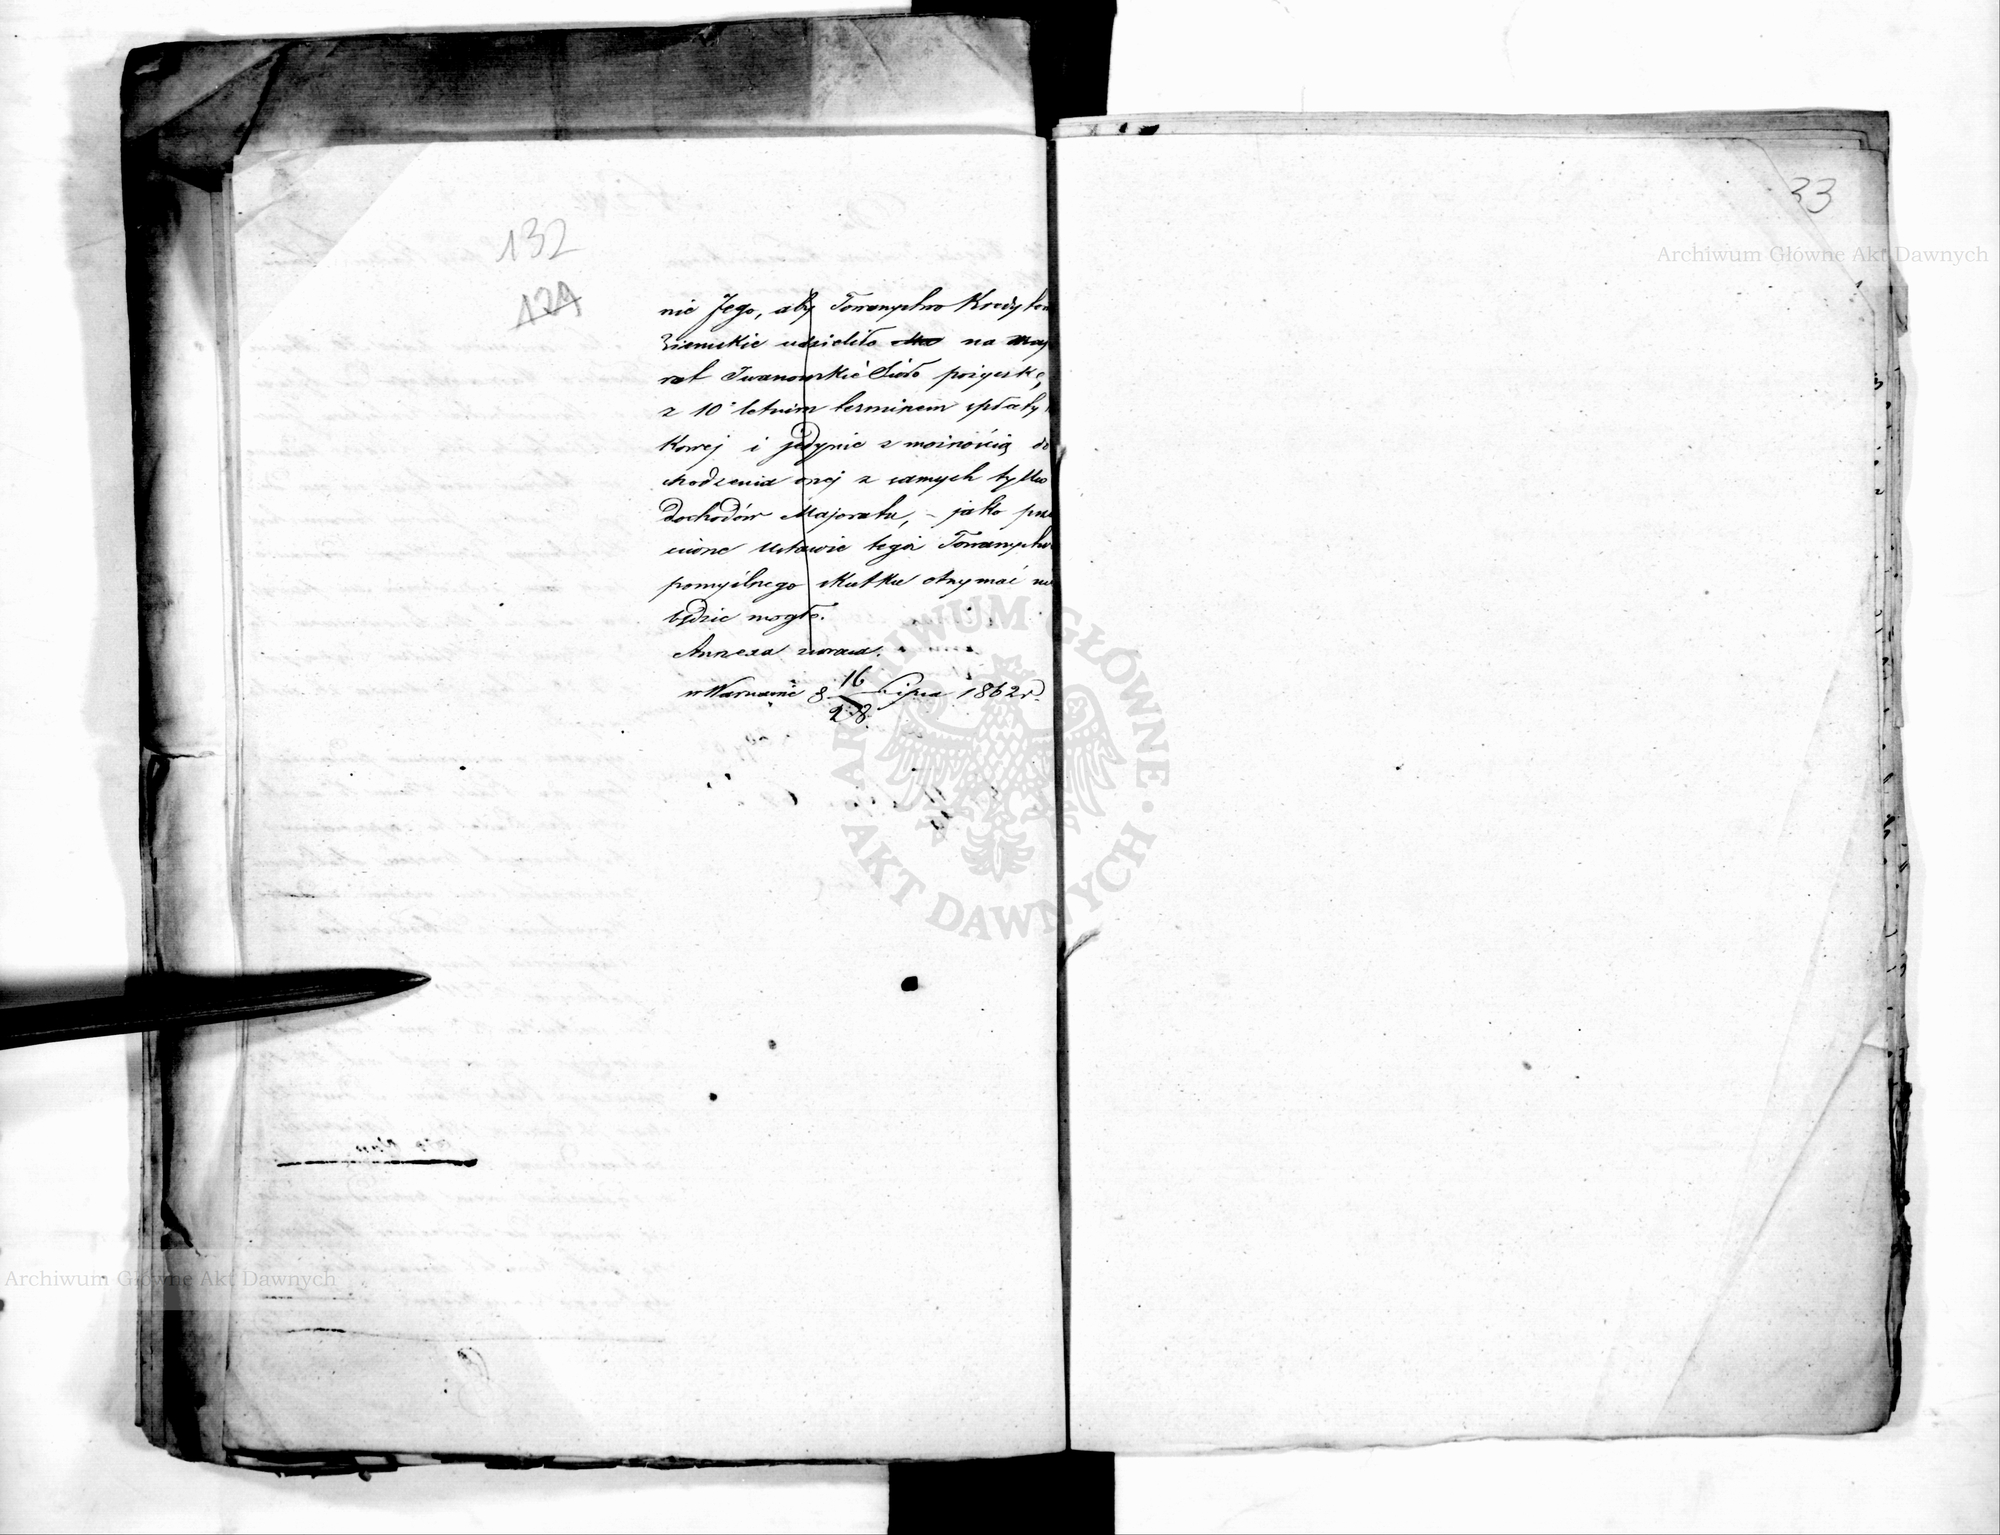 132
129
nie Jego, aby Towarzystwo Kredytow
Ziemskie udzieliło na Majo
rat Iwanowskie Sioło pożyczkę,
z 10 letnim terminem spłaty
kowej i jedynie z możnością do
chodzenia onej z samych tylko
dochodów Majoratu, – jako prze
ciwne Ustawie tegoż Towarzystwa
pomyślnego skutku otrzymać nie
będzie mogło.
Annexa zwraca.
w Warszawie d 16/28 Lipca 1862 r.
33
Archiwum Główne Akt Dawnych
ARCHIWUM GŁÓWNE · AKT DAWNYCH ·
Archiwum Główne Akt Dawnych